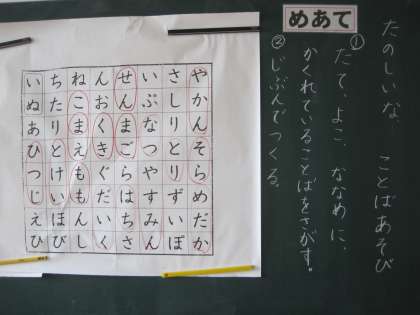 たのしいな ことばあそび
めあて
① たて、よこ、ななめに、
かくれていることばをさがす。
② じぶんでつくる。
やかんそらめだか
さしりとりずいぽ
いぶなつやすみん
せんまごらはちさ
んおくきぐだいく
ねこまえももんし
ちたりとけいほび
いぬあひつじえひ